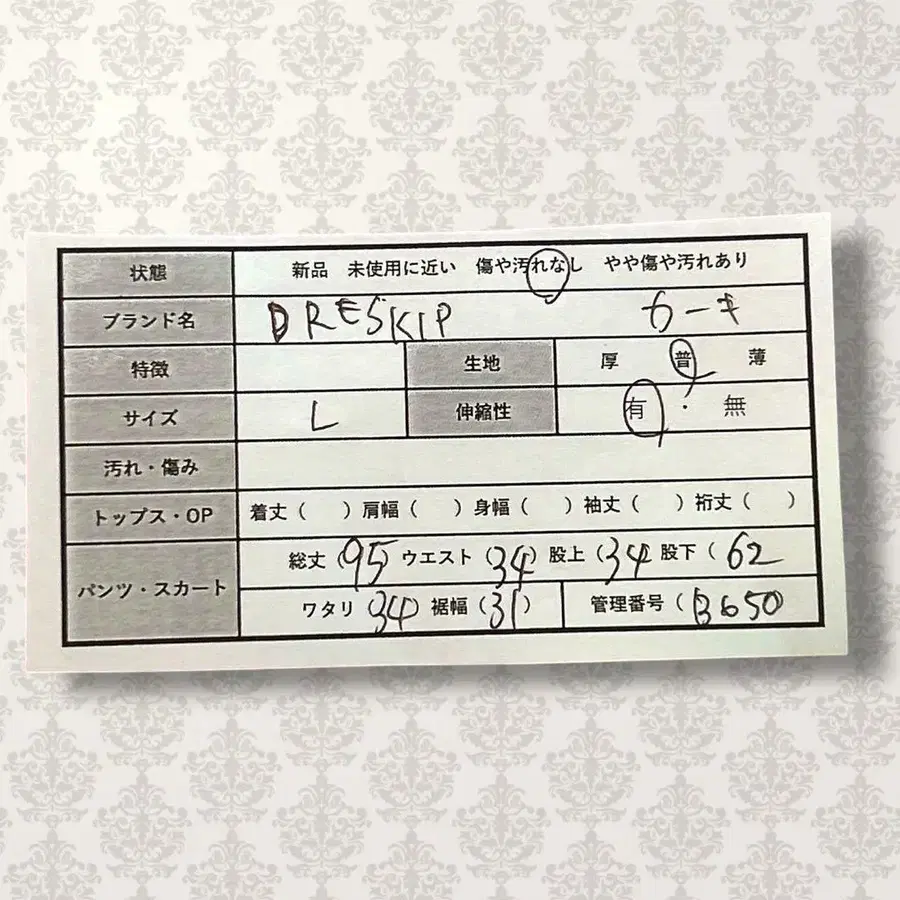 状態 新品 未使用に近い 傷や汚れなし やや傷や汚れあり
ブランド名 DRESKIP カーキ
特徴 生地 厚 普 薄
サイズ L 伸縮性 有・無
汚れ・傷み
トップス・OP 着丈（ ）肩幅（ ）身幅（ ）袖丈（ ）裄丈（ ）
パンツ・スカート 総丈（95 ウエスト（34）股上（34 股下（62
ワタリ（34）裾幅（31） 管理番号（B650